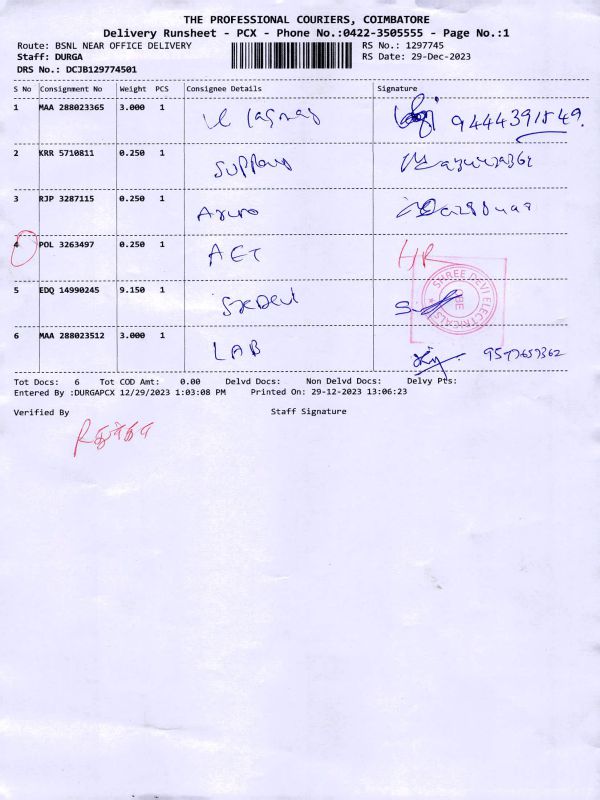 THE PROFESSIONAL COURIERS, COIMBATORE
Delivery Runsheet - PCX - Phone No.:0422-3505555 - Page No.:1
Route: BSNL NEAR OFFICE DELIVERY RS No.: 1297745
Staff: DURGA RS Date: 29-Dec-2023
DRS No.: DCJB129774501
S No Consignment No Weight PCS Consignee Details Signature
1 MAA 288023365 3.000 1 9444391849.
2 KRR 5710811 0.250 1
3 RJP 3287115 0.250 1
4 POL 3263497 0.250 1 AET HR
5 EDQ 14990245 9.150 1
SHREE DEVI ELECTRICALS CBE
6 MAA 288023512 3.000 1 LAB
Tot Docs: 6 Tot COD Amt: 0.00 Delvd Docs: Non Delvd Docs: Delvy Pts:
Entered By :DURGAPCX 12/29/2023 1:03:08 PM Printed On: 29-12-2023 13:06:23
Verified By Staff Signature